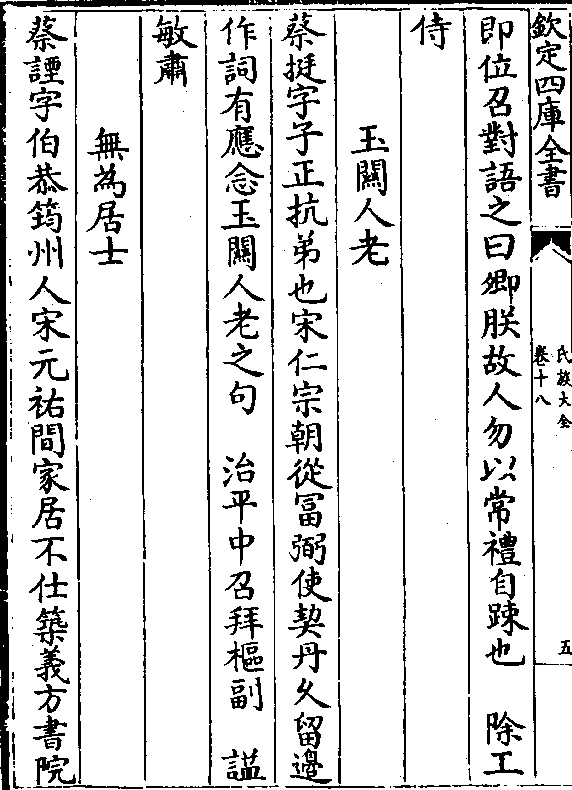 欽定四庫全書
氏族大全
卷十八
五
即位召對語之曰卿朕故人勿以常禮自踈也　除工
侍
玉關人老
蔡挺字子正抗弟也宋仁宗朝從冨弼使契丹乆留邊
作詞有應念玉關人老之句　治平中召拜樞副　諡
敏肅
無為居士
蔡諲字伯恭筠州人宋元祐間家居不仕築義方書院